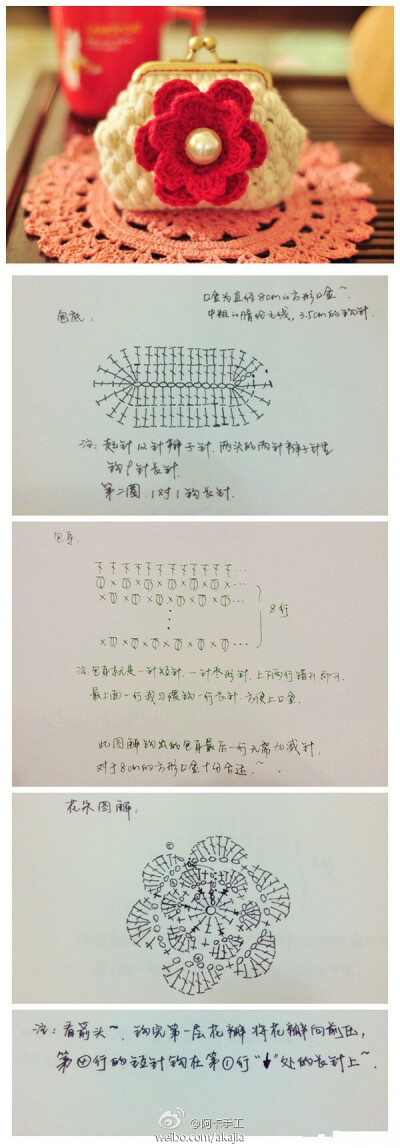 口金为直径8cm的方形口金~.
包底.
中粗的腈纶毛线, 3.5cm的钩针.
注: 起针12针辫子针. 两头的两针辫子针里
钩9针长针.
第二圈 1对1钩长针.
包身.
8行
注: 包身就是一针短针, 一针枣形针, 上下两行错开即可.
最上面一行我习惯钩一行长针, 方便上口金.
此图解钩出的包身最后一行无需加减针,
对于8cm的方形口金十分合适~.
花朵图解.
注: 看箭头~. 钩完第一层花瓣将花瓣向前压,
第④行的短针钩在第①行"↓"处的长针上~.
@阿卡手工
weibo.com/akajia